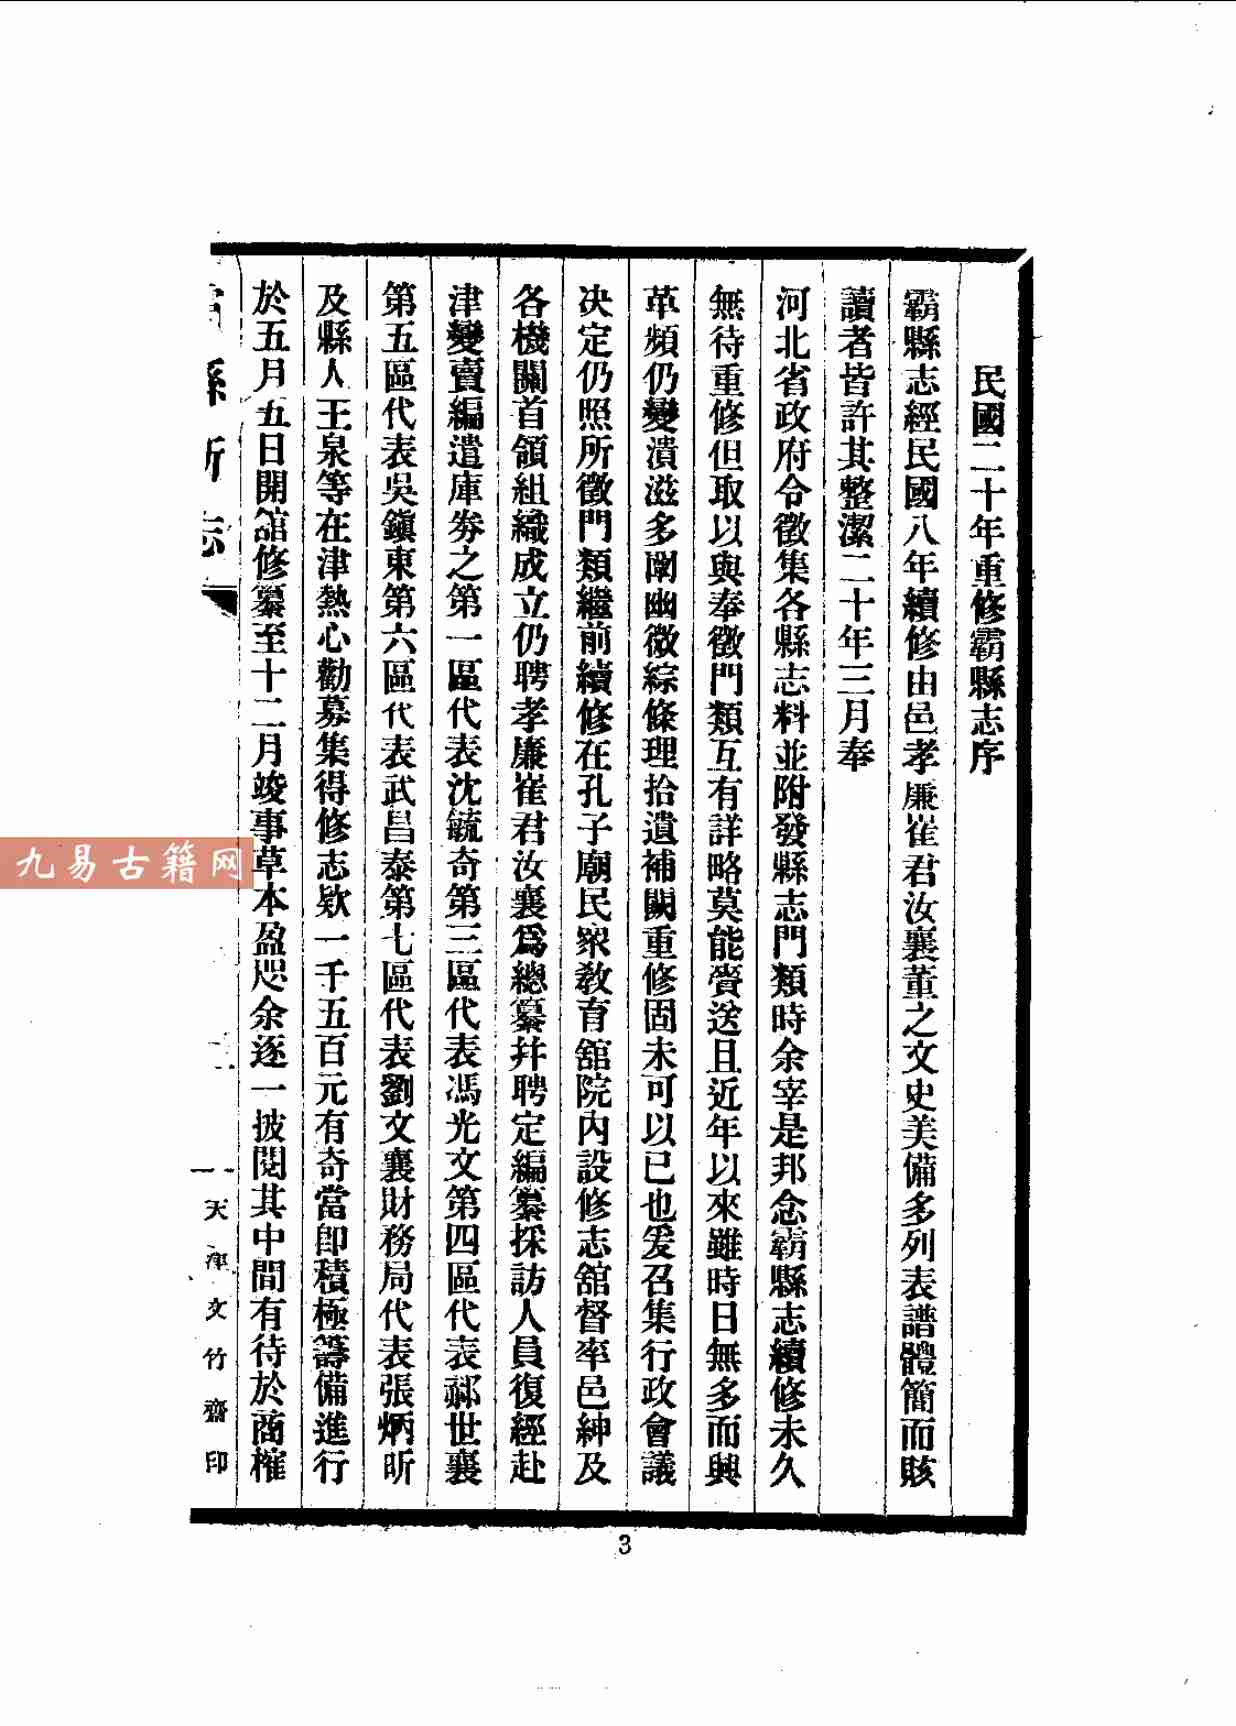 民國二十年重修霸縣志序
霸縣志經民國八年續修由邑孝廉崔君汝襄董之文史美備多列表譜體簡而賅
讀者皆許其整潔二十年三月奉
河北省政府令徵集各縣志料並附發縣志門類時余宰是邦念霸縣志續修未久
無待重修但取以與奉徵門類互有詳略莫能賫送且近年以來雖時日無多而興
革頻仍變潰滋多闡幽微綜條理拾遺補闕重修固未可以已也爰召集行政會議
决定仍照所徵門類繼前續修在孔子廟民衆敎育舘院內設修志舘督率邑紳及
各機關首領組織成立仍聘孝廉崔君汝襄爲總纂幷聘定編纂採訪人員復經赴
津變賣編遣庫劵之第一區代表沈毓奇第三區代表馮光文第四區代表郝世襄
第五區代表吳鎭東第六區代表武昌泰第七區代表劉文襄財務局代表張炳昕
及縣人王泉等在津熱心勸募集得修志欵一千五百元有奇當卽積極籌備進行
於五月五日開舘修纂至十二月竣事草本盈咫余逐一披閱其中間有待於商榷
縣新志
一
天津文竹齋印
3
九易古籍网